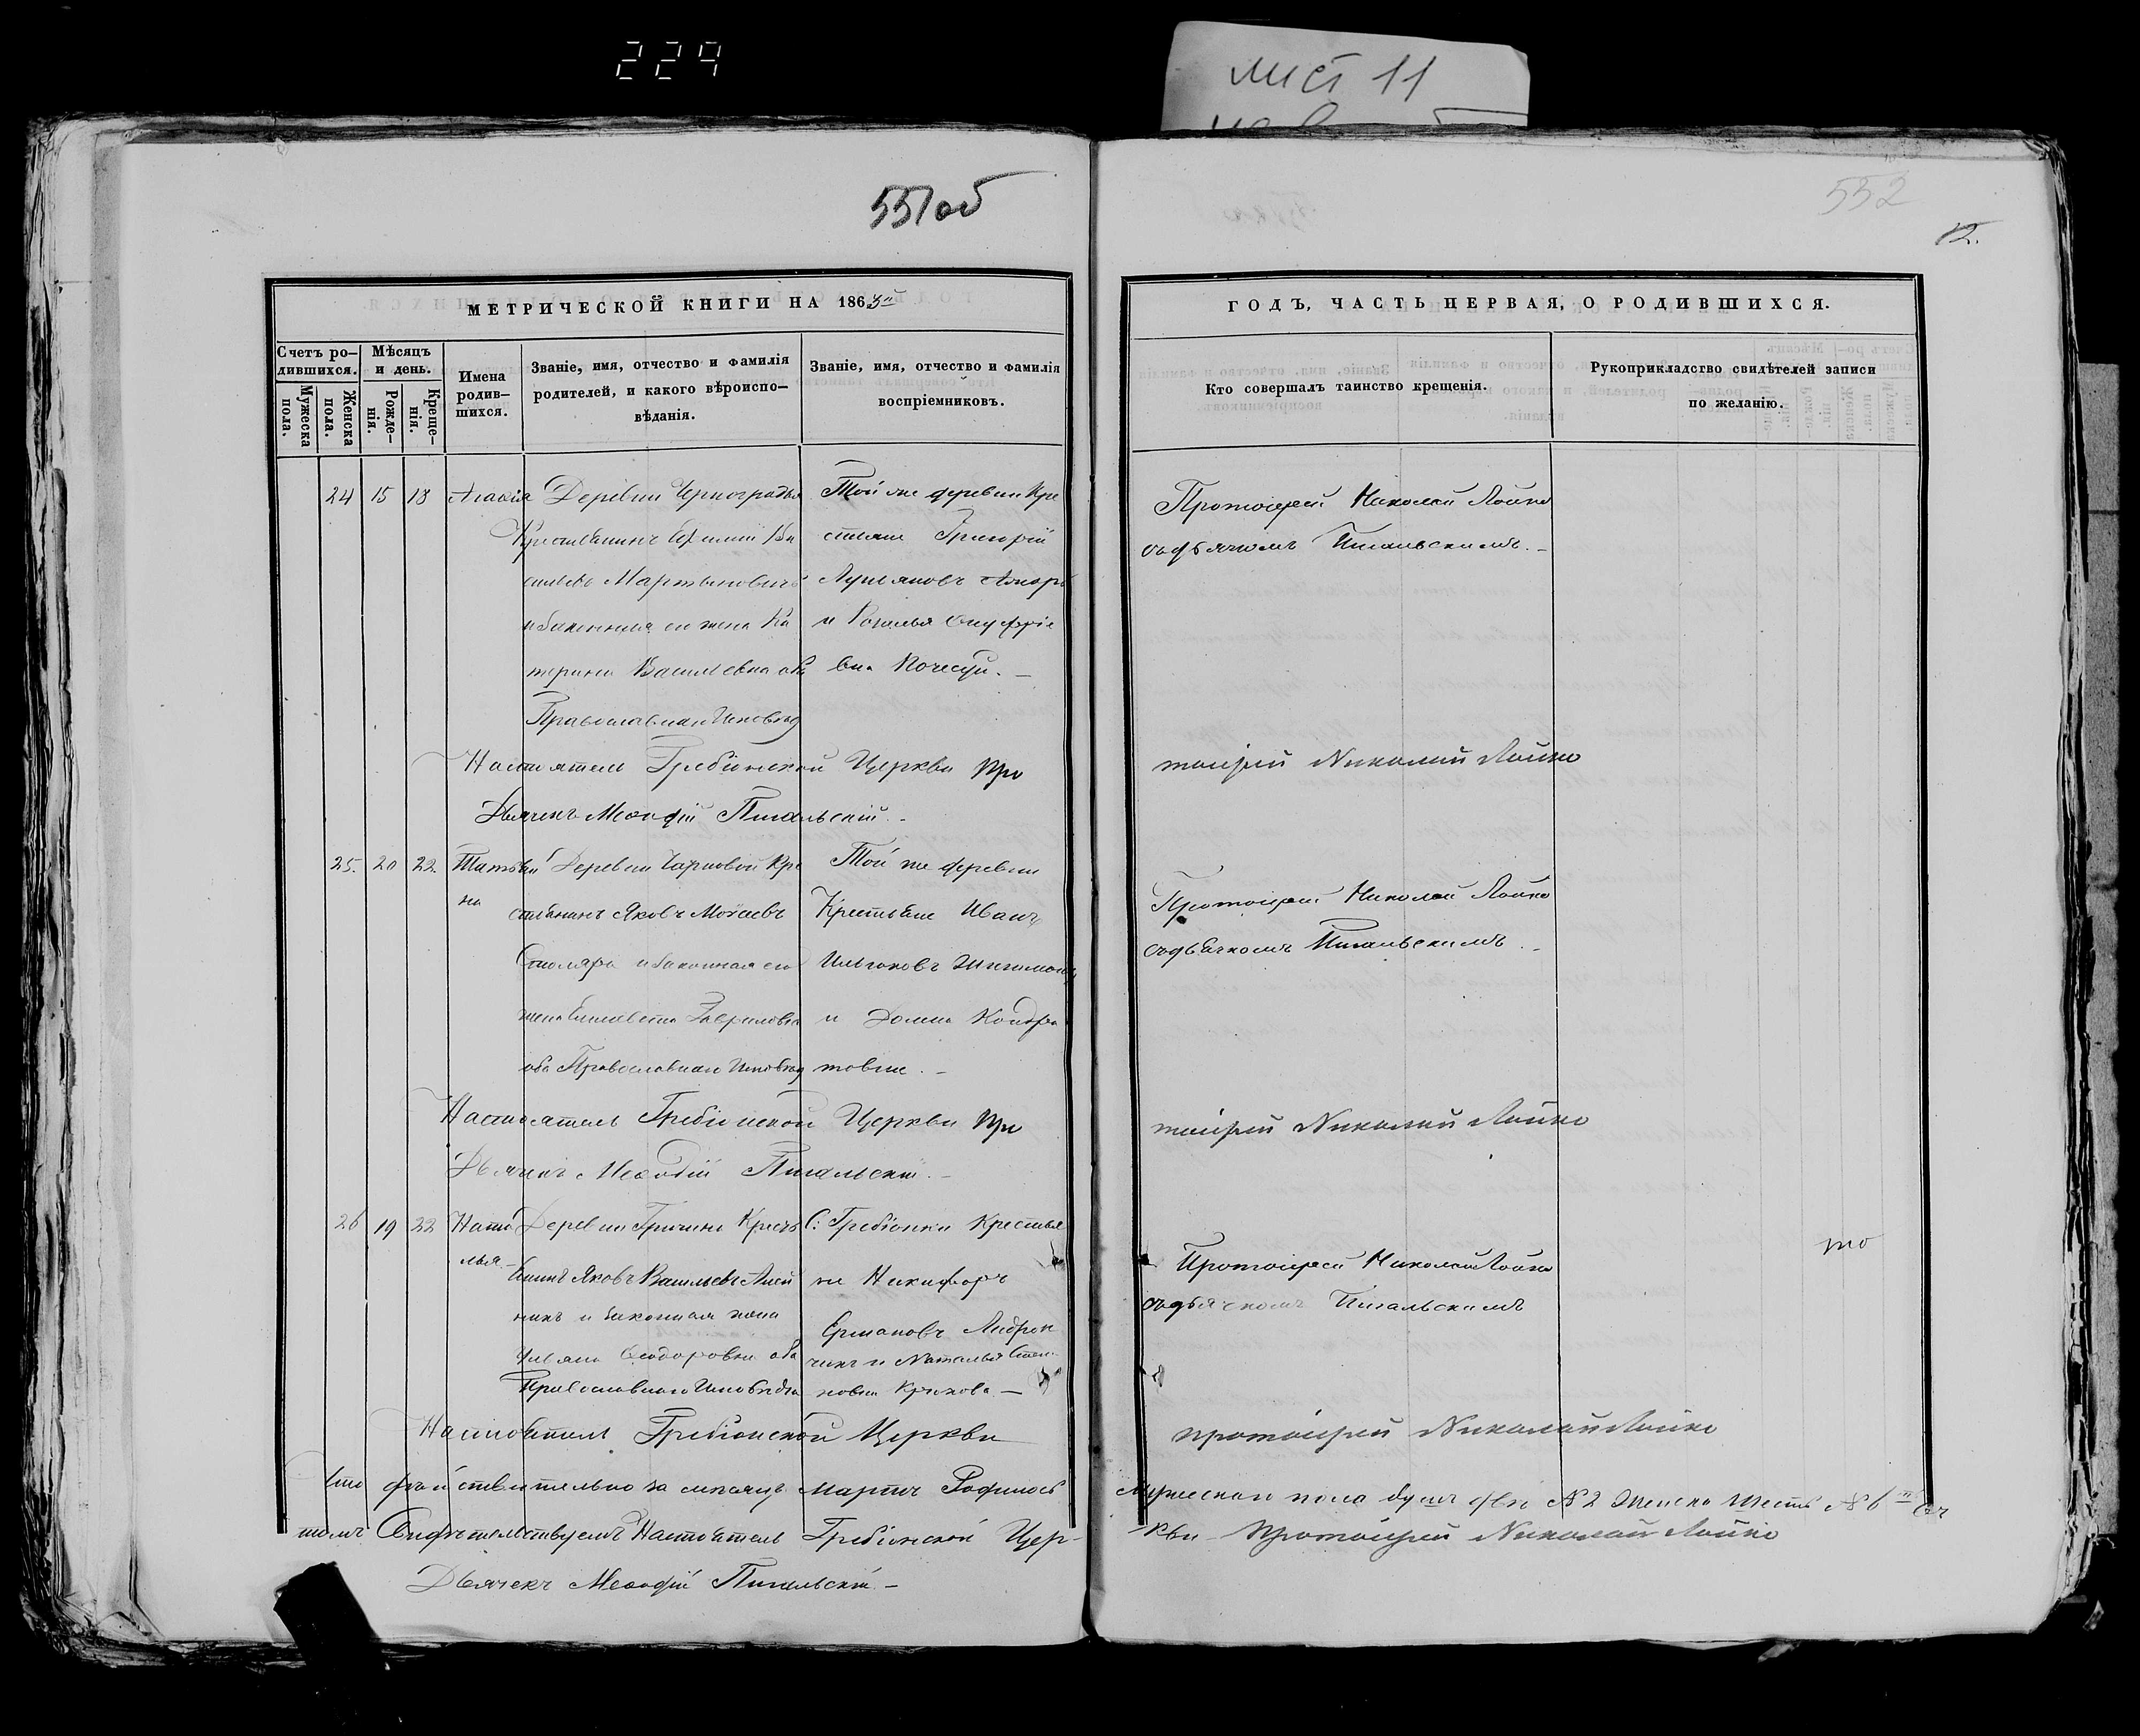 224
лист 11
551 об
552
12.
МЕТРИЧЕСКОЙ КНИГИ НА 1863й
ГОДЪ, ЧАСТЬ ПЕРВАЯ, О РОДИВШИХСЯ.
Счетъ ро-
дившихся.
Мужеска
пола.
Женска
пола.
Мѣсяцъ
и день.
Рожде-
нія.
Креще-
нія.
Имена
родив-
шихся.
Званіе, имя, отчество и фамилія
родителей, и какого вѣроиспо-
вѣданія.
Званіе, имя, отчество и фамилія
воспріемниковъ.
Кто совершалъ таинство крещенія.
Рукоприкладство свидѣтелей записи
по желанію.
24 15 18
Деревни Черноградья
Крестьянинъ Ефимій Ва
сильевъ Мартиновичъ
и законная его жена Ка
терина Василевна оба
Православнаго Исповѣд
Той же деревни Кре
стьяне Григорій
Лукьяновъ
и Розалья Онуфріе
вна
Протоіерей Николай Лойко
съ дьячкомъ Пигальскимъ. –
Настоятель Гребіонской Церкви Про
тоіерей Николай Лойко
Дьячекъ Меѳодій Пигальскій. –
25. 20 22.
Татья
на
Деревни Чарновой Кре
стьянинъ Яковъ Моѵсеевъ
Столяръ и законная его
жена Елисавета Гавриловна
оба Православнаго Исповѣд
Той же деревни
Крестьяне Иванъ
и Домна Кондра
товна. –
Протоіерей Николай Лойко
съ дьячкомъ Пигальскимъ. –
Настоятель Гребіонской Церкви Про
тоіерей Николай Лойко
Дьячекъ Меѳодій Пигальскій. –
26 19 22
Ната
лья –
Деревни Гричина Кресть
янинъ Яковъ Васильевъ Алей
никъ и законная жена
Ульяна Ѳеодоровна оба
Православнаго Исповѣда
С: Гребіонки Крестья
не Никифоръ
Ермаковъ Андрон
чикъ и Наталья Степа
новна Крюкова. –
Протоіерей Николай Лойко
съ дьячкомъ Пигальскимъ
то
Настоятель Гребіонской Церкви
протоіерей Николай Лойко
Что дѣйствительно за мѣсяцъ Мартъ Родилось
Мужескаго пола душъ двѣ N 2 Женска шесть N 6 въ
томъ Свидѣтельствуемъ Настоятель Гребіонской Цер-
кви – Протоіерей Николай Лойко
Дьячекъ Меѳодій Пигальскій. –